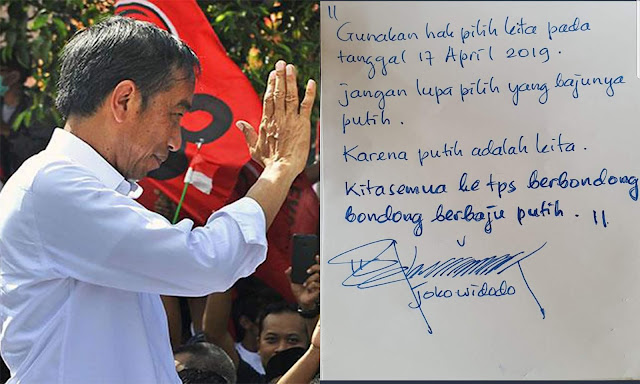 "
Gunakan hak pilih kita pada
tanggal 17 April 2019.
jangan lupa pilih yang bajunya
putih.
Karena putih adalah kita.
Kita semua ke tps berbondong
bondong berbaju putih. "
joko widodo